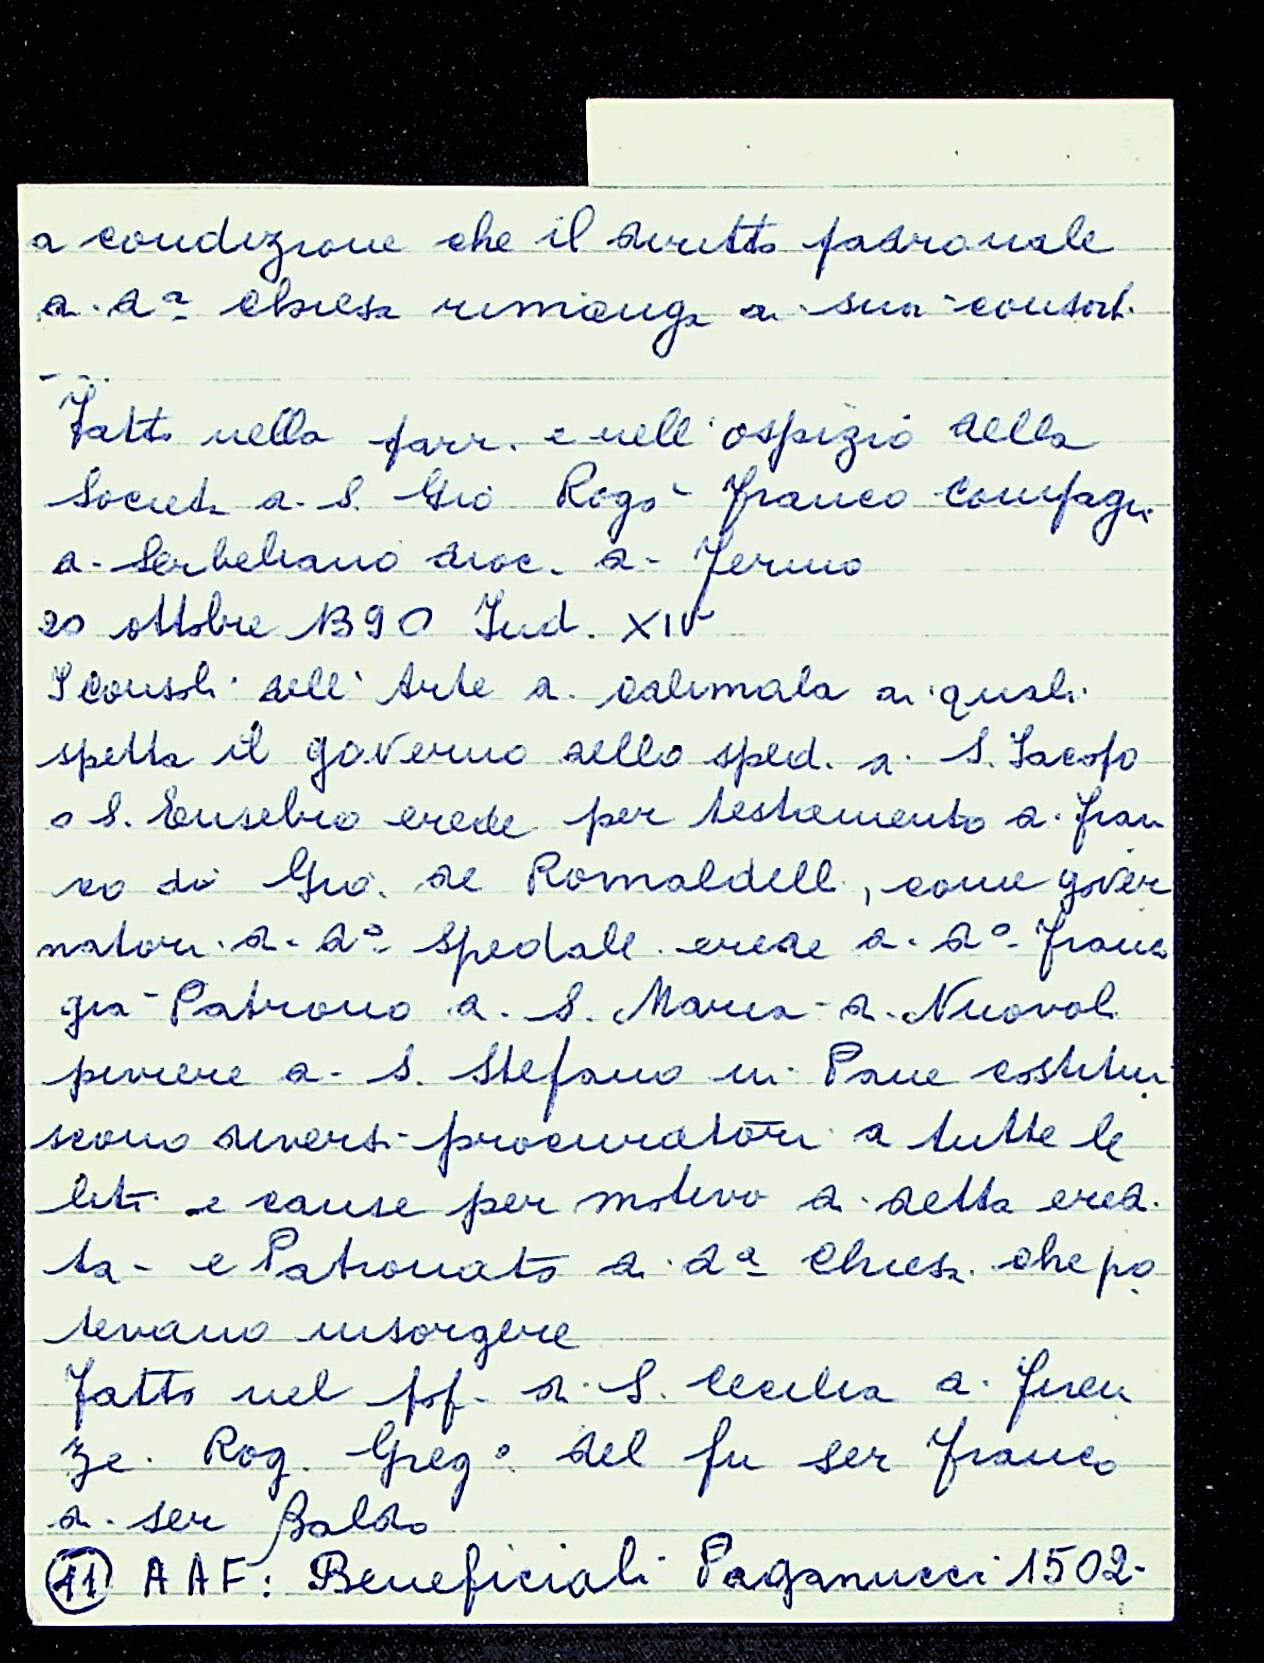 a condizione che il diritto padronale
di dª chiesa rimanga ai suoi consorti
Fatto nella parr. e nell'ospizio della
Società di S. Gio Rogò Franco Compagn
di Serbeliano dioc. di Fermo
20 ottobre 1390 Ind. XIV
I Consoli dell'Arte di Calimala ai quali
spetta il governo dello sped. di S. Iacopo
o S. Eusebio erede per testamento di Fran
co di Gio. de Romaldelli, come gover
natori di dº Spedale erede di dº Franco
già Patrono di S. Maria di Nuovoli
piviere di S. Stefano in Pane costitui
scono diversi procuratori a tutte le
liti e cause per motivo di detta eredi
tà e Patronato di dª Chiesa che po
tevano insorgere
Fatto nel pop. di S. Cecilia di Firen
ze. Rog. Gregº del fu ser Franco
di ser Baldo
(11) AAF: Beneficiali Paganucci 1502-